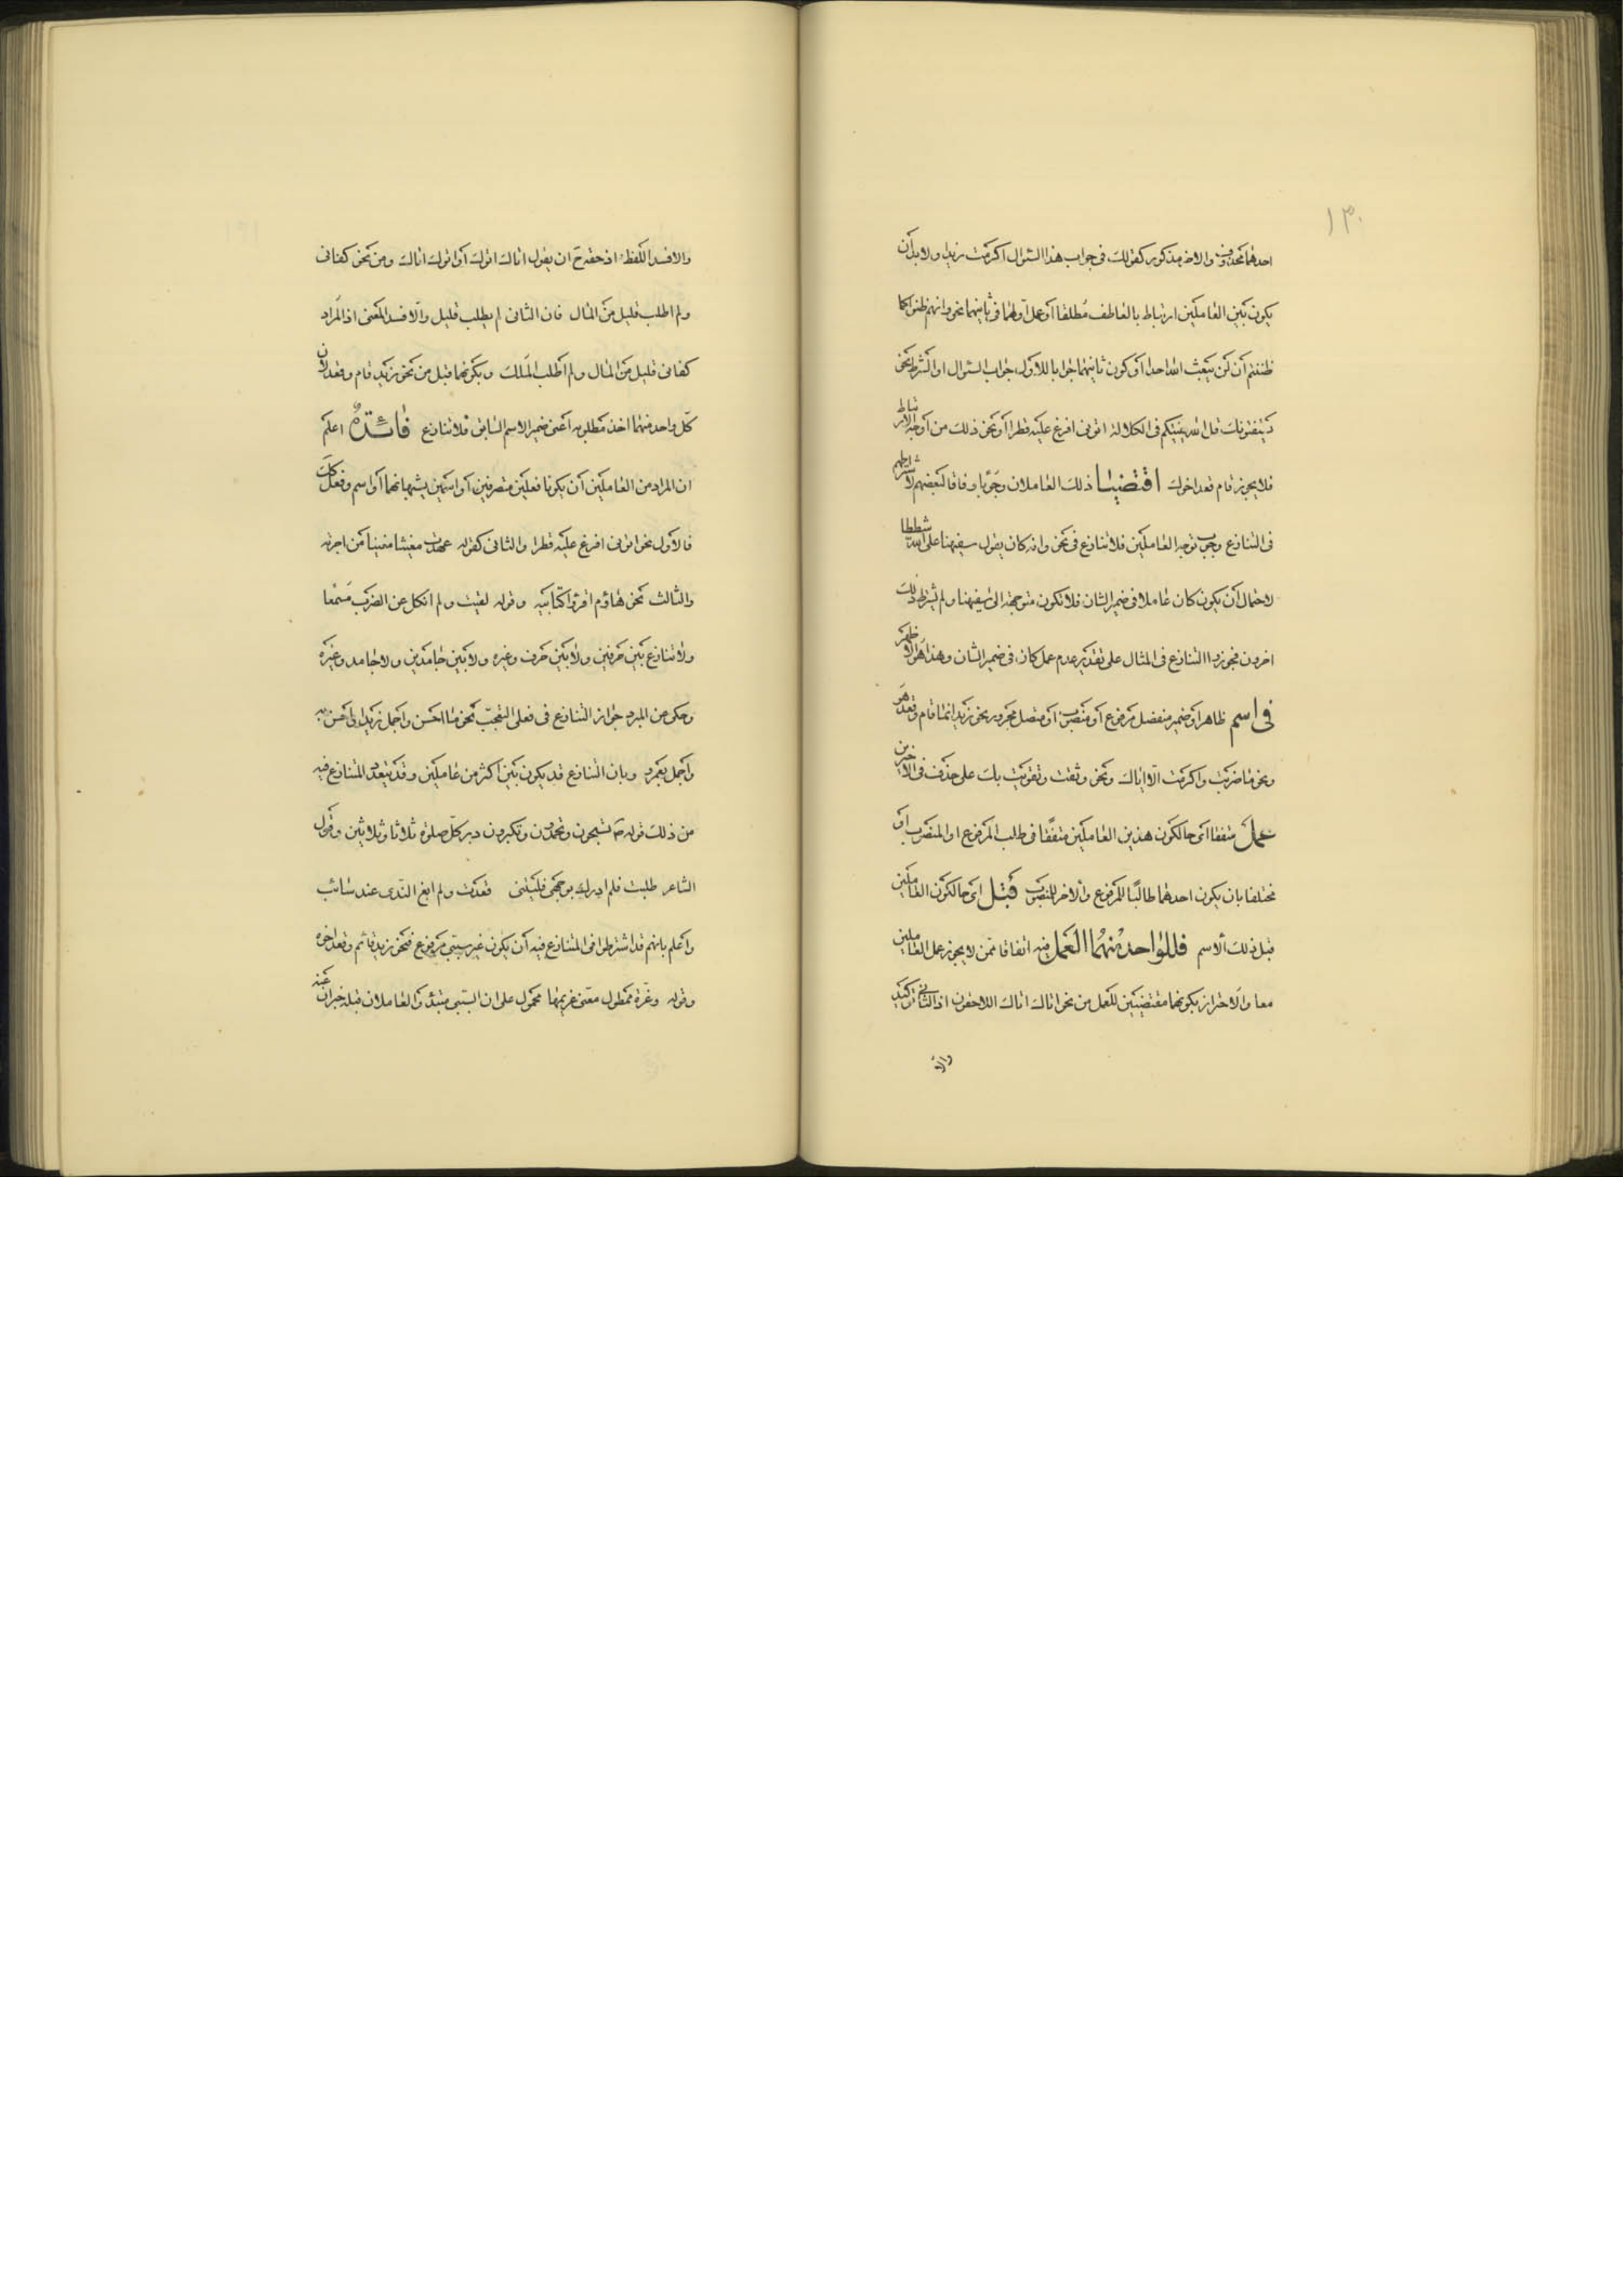 ١٣٠
احدهما محذوف والاخر مذكور كقولك فى جواب هذا السؤال اكرمت زيدا ولا بد أن
يكون بين العاملين ارتباط بالعاطف مطلقا أو عمل أولهما فى ثانيهما نحو وانهم ظنوا كما
ظننتم أن لن يبعث الله احدا أو كون ثانيهما جوابا للاول جواب السؤال او الشرط نحو
يستفتونك قل الله يفتيكم فى الكلالة اتونى افرغ عليه قطرا أو نحو ذلك من أوجه الارتباط
فلا يجوز قام قعد اخوك اقتضيا ذلك العاملان وجوبا وفاقا لبعضهم لاشتراطهم
فى التنازع وجوب توجه العاملين فلا تنازع فى نحو وانه كان يقول سفيهنا على الله شططا
لاحتمال أن يكون كان عاملا فى ضمير الشان فلا تكون متوجهة الى سفيهنا ولم يشترط ذلك
اخرون فجوزوا التنازع فى المثال على تقدير عدم عمل كان فى ضمير الشان وهذا هو الاظهر
فى اسم ظاهر أو ضمير منفصل مرفوع أو منصوب أو متصل مجرور نحو زيد انما قام وقعد هو
ونحو ما ضربت واكرمت الا اياك ونحو وثقت وتقويت بك على حذف فى الاخيرين
عمل متفقا اى حالكون هذين العاملين متفقا فى طلب المرفوع او المنصوب او
مختلفا بان يكون احدهما طالبا للمرفوع والاخر للمنصوب قبل اى حالكون العاملين
قبل ذلك الاسم فللواحد منهما العمل فيه اتفاقا ممن لا يجوز عمل العاملين
معا والاحتراز بكونهما مقتضيين للعمل من نحو اتاك اتاك اللاحقون اذ الثانى توكيد
والا
والا فسد اللفظ اذ حقه ح ان يقول اتاك اتوك أو اتوك اتاك ومن نحو كفانى
ولم اطلب قليل من المال فان الثانى لم يطلب قليل والا فسد المعنى اذ المراد
كفانى قليل من المال ولم أطلب الملك وبكونهما قبل من نحو زيد قام وقعد لان
كل واحد منهما اخذ مطلوبه أعنى ضمير الاسم السابق فلا تنازع فائدة اعلم
ان المراد من العاملين أن يكونا فعلين متصرفين أو اسمين يشبهانهما أو اسم وفعل كك
فالأول نحو اتونى افرغ عليه قطرا والثانى كقوله عهدت مغيثا مغنيا من اجرته
والثالث نحو هاؤم اقرؤا كتابيه وقوله لقيت ولم انكل عن الضرب مسمعا
ولا تنازع بين حرفين ولا بين حرف وغيره ولا بين جامدين ولا جامد وغيره
وحكى من المبرد جواز التنازع فى فعلى التعجب نحو ما احسن واجمل زيدا واحسن به
واجمل بعمرو وبان التنازع قد يكون بين اكثر من عاملين وقد يتعدد المتنازع فيه
من ذلك قوله ص تسبحون وتحمدون وتكبرون دبر كل صلوة ثلاثا وثلاثين وقول
الشاعر طلبت فلم ادرك بوجهى فليتنى قعدت ولم ابغ الندى عند سائب
واعلم بانهم قد اشترطوا فى المتنازع فيه أن يكون غير سببى مرفوع فنحو زيد قائم وقعد اخوه
وقوله وعزة ممطول معنى غريمها محمول على ان السببى مبتدأ والعاملان قبله خبران عنه